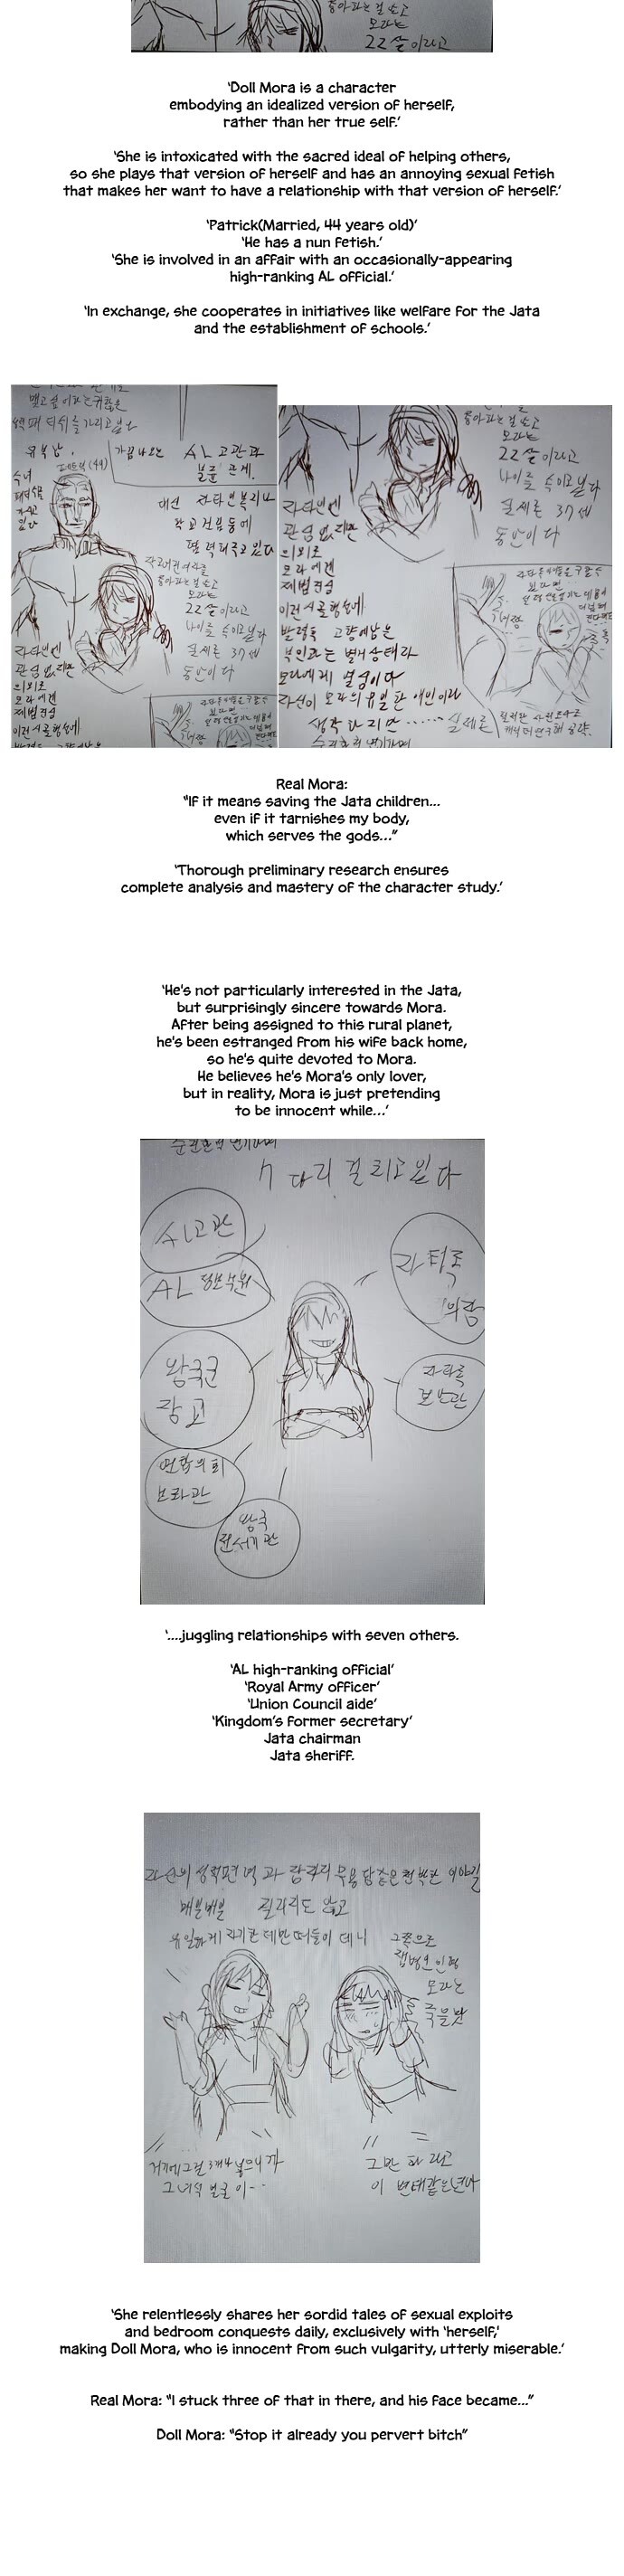 좋아하는걸 알고
모라는
22살 이라고
'Doll Mora is a character
embodying an idealized version of herself,
rather than her true self.'
'She is intoxicated with the sacred ideal of helping others,
so she plays that version of herself and has an annoying sexual fetish
that makes her want to have a relationship with that version of herself.'
'Patrick(Married, 44 years old)'
'He has a nun fetish.'
'She is involved in an affair with an occasionally-appearing
high-ranking AL official.'
'In exchange, she cooperates in initiatives like welfare for the Jata
and the establishment of schools.'
맺고싶어하는 귀찮은
유부남.
(44)
수녀
있다
가끔나오는
AL고관과
불륜 관계.
대신 자타인복리나
학교건립등에
협력하고있다
좋아하는걸 알고
모라는
22살 이라고
나이를 속이고있다
실제론 37세
동안이다
자타인엔
관심없지만
의외로
모라에겐
제법진심
이런시골행성에
좋아하는걸 알고
모라는
22살 이라고
나이를 속이고있다
실제론 37세
동안이다
자타인엔
관심없지만
의외로
모라에겐
제법진심
이런시골행성에
발령돼 고향에남은
부인과는 별거상태라
모라에게 열심이다
자신이 모라의 유일한 애인이라
생각하지만...... 실제론
Real Mora:
"If it means saving the Jata children...
even if it tarnishes my body,
which serves the gods..."
'Thorough preliminary research ensures
complete analysis and mastery of the character study.'
'He's not particularly interested in the Jata,
but surprisingly sincere towards Mora.
After being assigned to this rural planet,
he's been estranged from his wife back home,
so he's quite devoted to Mora.
He believes he's Mora's only lover,
but in reality, Mora is just pretending
to be innocent while...'
순진한척 연기하며
7다리 걸치고있다
AL고관
AL
자타족
의장
왕국군
장교
자타족
보안관
연합의회
보좌관
왕국
전서기관
'....juggling relationships with seven others.
'AL high-ranking official'
'Royal Army officer'
'Union Council aide'
'Kingdom's former secretary'
Jata chairman
Jata sheriff.
자신의 성적편력과 잠자리 무용담같은 천박한 이야길
매일매일 질리지도 않고
유일하게 자기한테만 떠들어 대니
그쪽으로
인형
모라는
죽을맛
거기에그걸 3개나 넣으니까
그녀석 얼굴이..
그만 하라고
이 변태같은년아
'She relentlessly shares her sordid tales of sexual exploits
and bedroom conquests daily, exclusively with 'herself,'
making Doll Mora, who is innocent from such vulgarity, utterly miserable.'
Real Mora: "I stuck three of that in there, and his face became..."
Doll Mora: "Stop it already you pervert bitch"